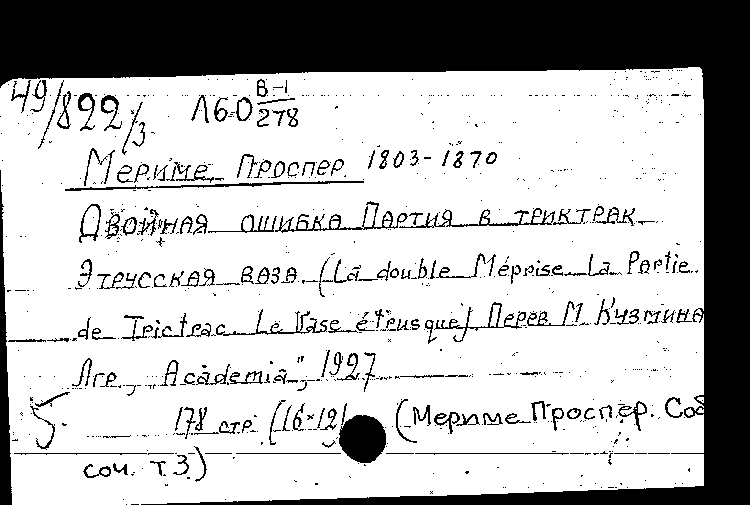 49/822/3 Л60 В-1/278
Мериме Проспер 1803-1870
Двойная ошибка Партия в триктрак
Этрусская ваза (La double Méprise La Partie
de Trictrac. Le Vase étrusque) Перев М. Кузмина
Лгр, „Academia", 1927
5. 178 стр (16×12) (Мериме Проспер. Соб
соч. т 3)